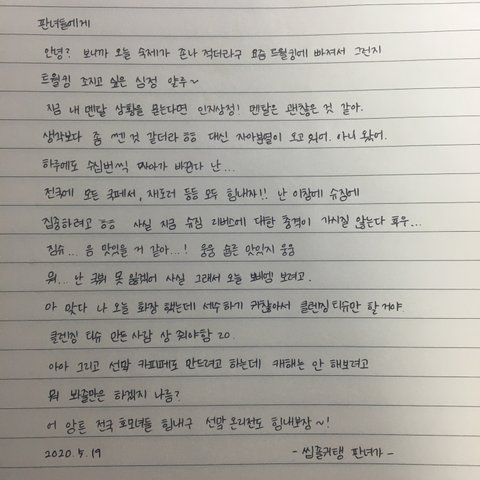 판녀들에게
안녕? 보니까 오늘 숙제가 존나 적더라구 요즘 드윌킹에 빠져서 그런지
트윌킹 조지고 싶은 심정 알루~
지금 내 멘탈 상황을 묻는다면 인지상정! 멘탈은 괜찮은 것 같아.
생각보다 좀 쎈 것 같더라 ㅎㅎ 대신 자아분열이 오고 있어. 아니 왔어.
하루에도 수십번씩 자아가 바뀐다 난...
전국에 모든 국페서, 재도러 등등 모두 힘내자!! 난 이참에 슈짐에
집중하려고 ㅎㅎ 사실 지금 슈짐 리버스에 대한 충격이 가시질 않는다 휴우...
짐슈... 음 맛있을 거 같아...! 웅웅 슙른 맛있지 웅웅
뭐... 난 국뷔 못 잃겠어 사실 그래서 오늘 뽀뱀 보려고.
아 맞다 나 오늘 화장 했는데 세수하기 귀찮아서 클렌징 티슈만 할 거야.
클렌징 티슈 만든 사람 상 줘야함 20.
아아 그리고 선막 카피페도 만드려고 하는데 캐해는 안 해보려고
뭐 봐줄만은 하겠지 나름?
어 암튼 전국 호모녀들 힘내구 선막 온리전도 힘내보장~!
2020.5.19 - 씹졸귀탱 판녀가 -